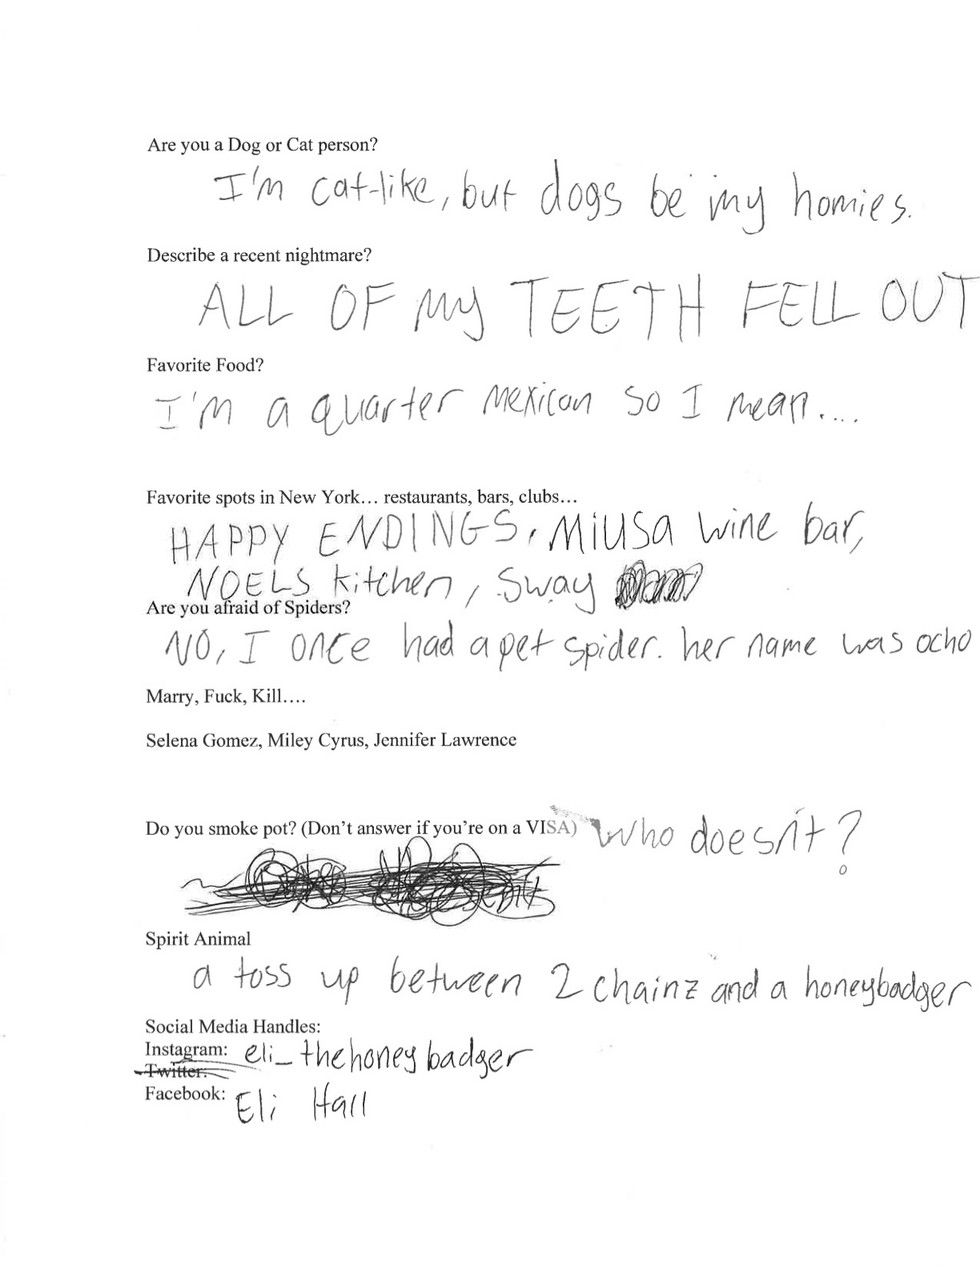 Are you a Dog or Cat person?
I'm cat-like, but dogs be my homies.
Describe a recent nightmare?
ALL OF My TEETH FELL OUT
Favorite Food?
I'm a quarter Mexican so I mean....
Favorite spots in New York… restaurants, bars, clubs…
HAPPY ENDINGS, MiUSA wine bar,
NOELS kitchen, Sway
Are you afraid of Spiders?
NO, I once had a pet spider. her name was ocho
Marry, Fuck, Kill….
Selena Gomez, Miley Cyrus, Jennifer Lawrence
Do you smoke pot? (Don't answer if you're on a VISA) Who doesn't?
Spirit Animal
a toss up between 2 chainz and a honeybadger
Social Media Handles:
Instagram: eli_thehoneybadger
Twitter:
Facebook: Eli Hall